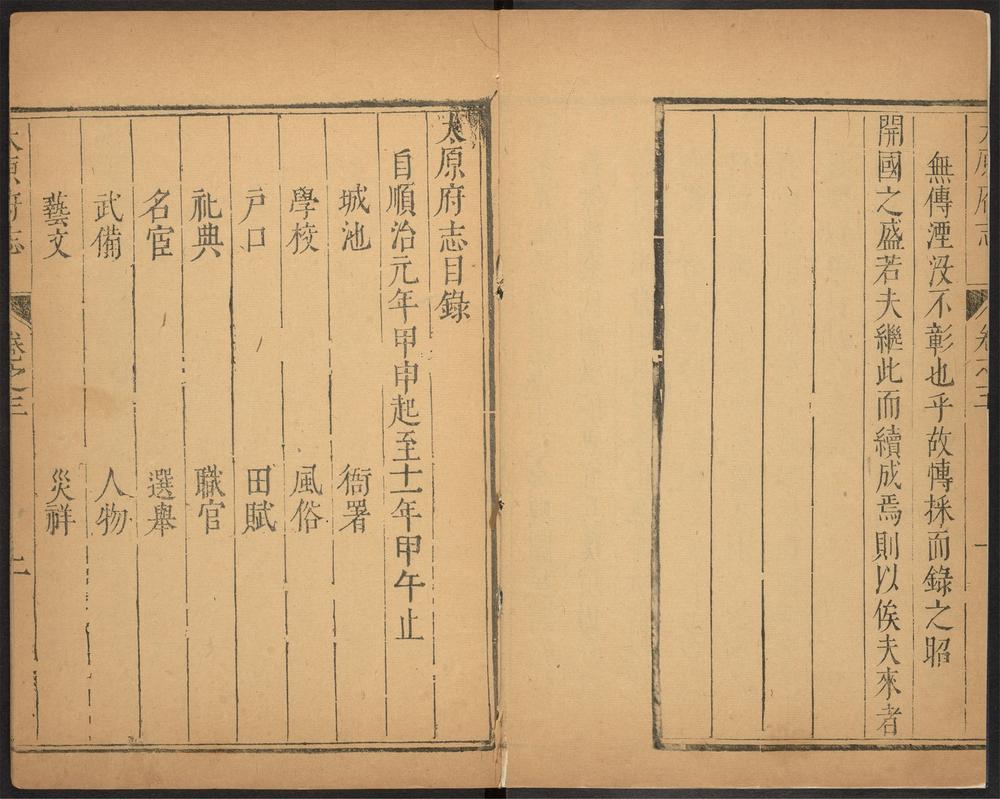 太原府志
卷之三
一
無傳湮没不彰也乎故博採而錄之昭
開國之盛若夫繼此而續成焉則以俟夫來者
太原府志目錄
自順治元年甲申起至十一年甲午止
城池　衙署
學校　風俗
戶口　田賦
祀典　職官
名宦　選舉
武備　人物
藝文　災祥
太原府志
卷之三
二